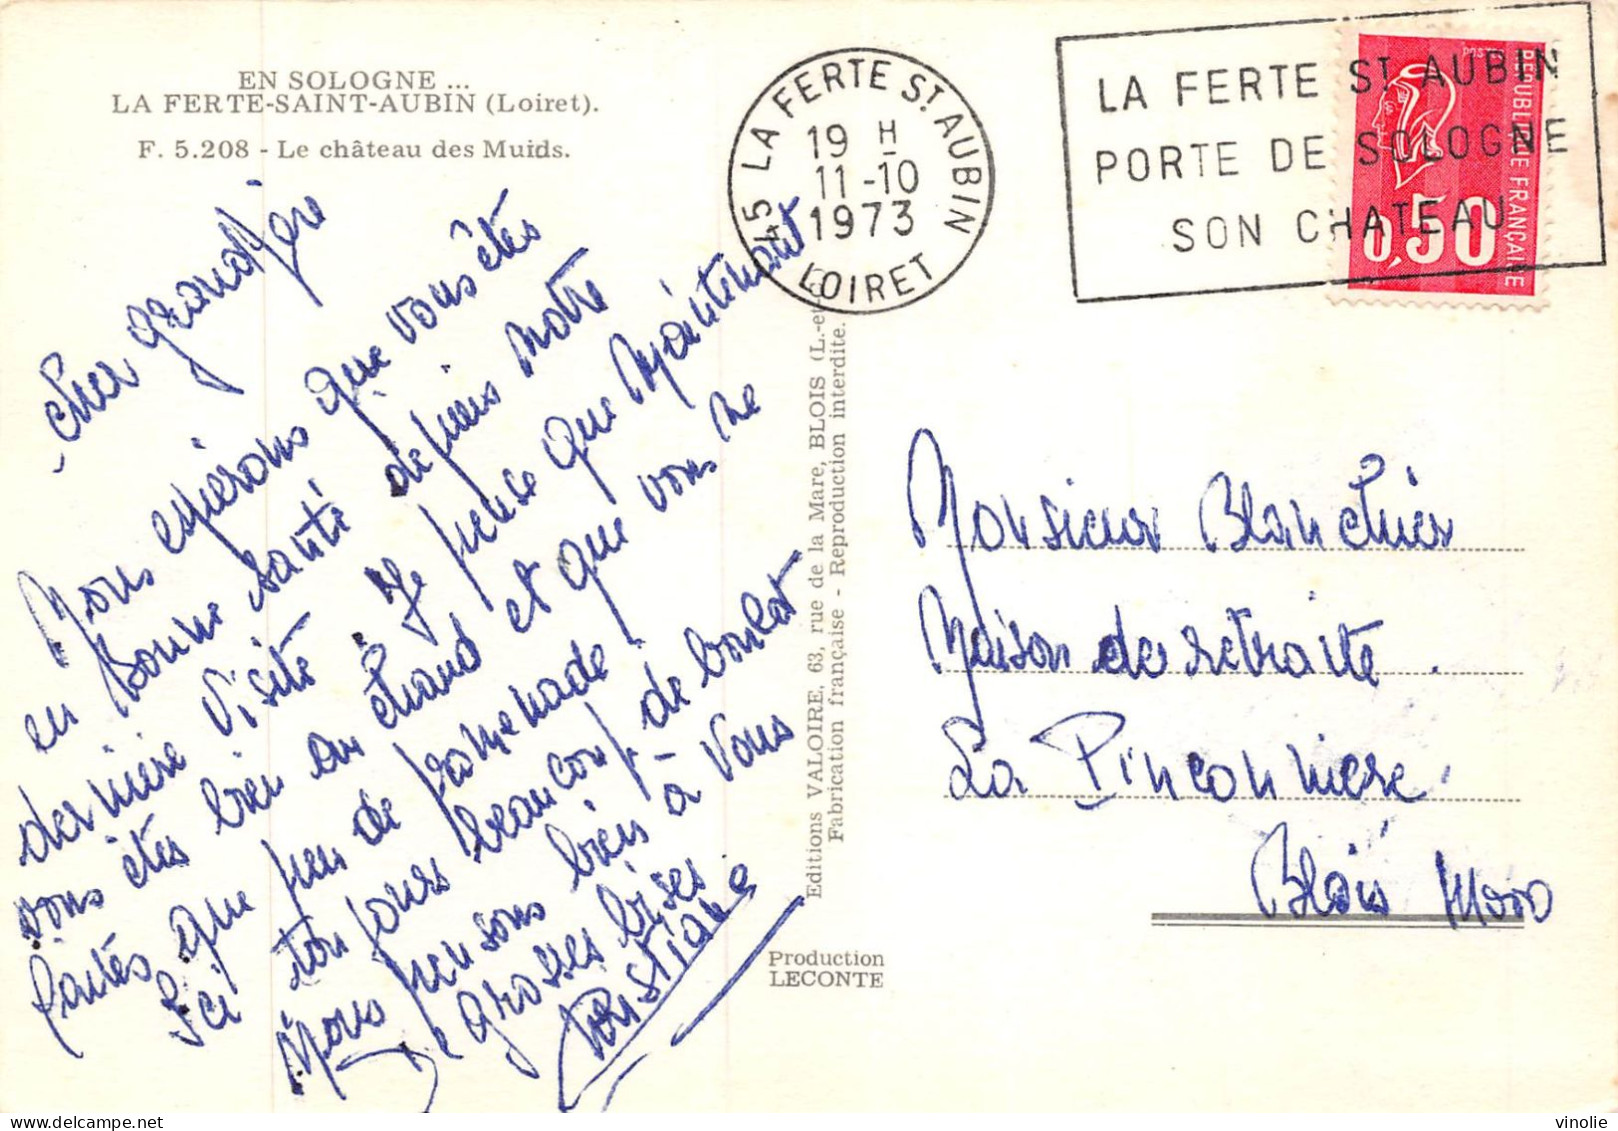 EN SOLOGNE ...
LA FERTE-SAINT-AUBIN (Loiret).
F. 5.208 - Le château des Muids.
Cher grand père
Nous espérons que vous êtes
en bonne santé depuis notre
dernière visite. Je pense que maintenant
vous êtes bien au chaud et que vous ne
faites que peu de promenade.
Ici toujours beaucoup de boulot
Nous pensons bien à vous
grosses bises
Christiane
45 LA FERTE ST AUBIN
19 H
11-10
1973
LOIRET
LA FERTE ST AUBIN
PORTE DE SOLOGNE
SON CHATEAU
POSTES
REPUBLIQUE FRANÇAISE
0,50
Editions VALOIRE, 63, rue de la Mare, BLOIS (L.-et-
Fabrication française - Reproduction interdite.
Production
LECONTE
Monsieur Blanchier
Maison de retraite.
La Pinconniere
Blois 41000
vinolie